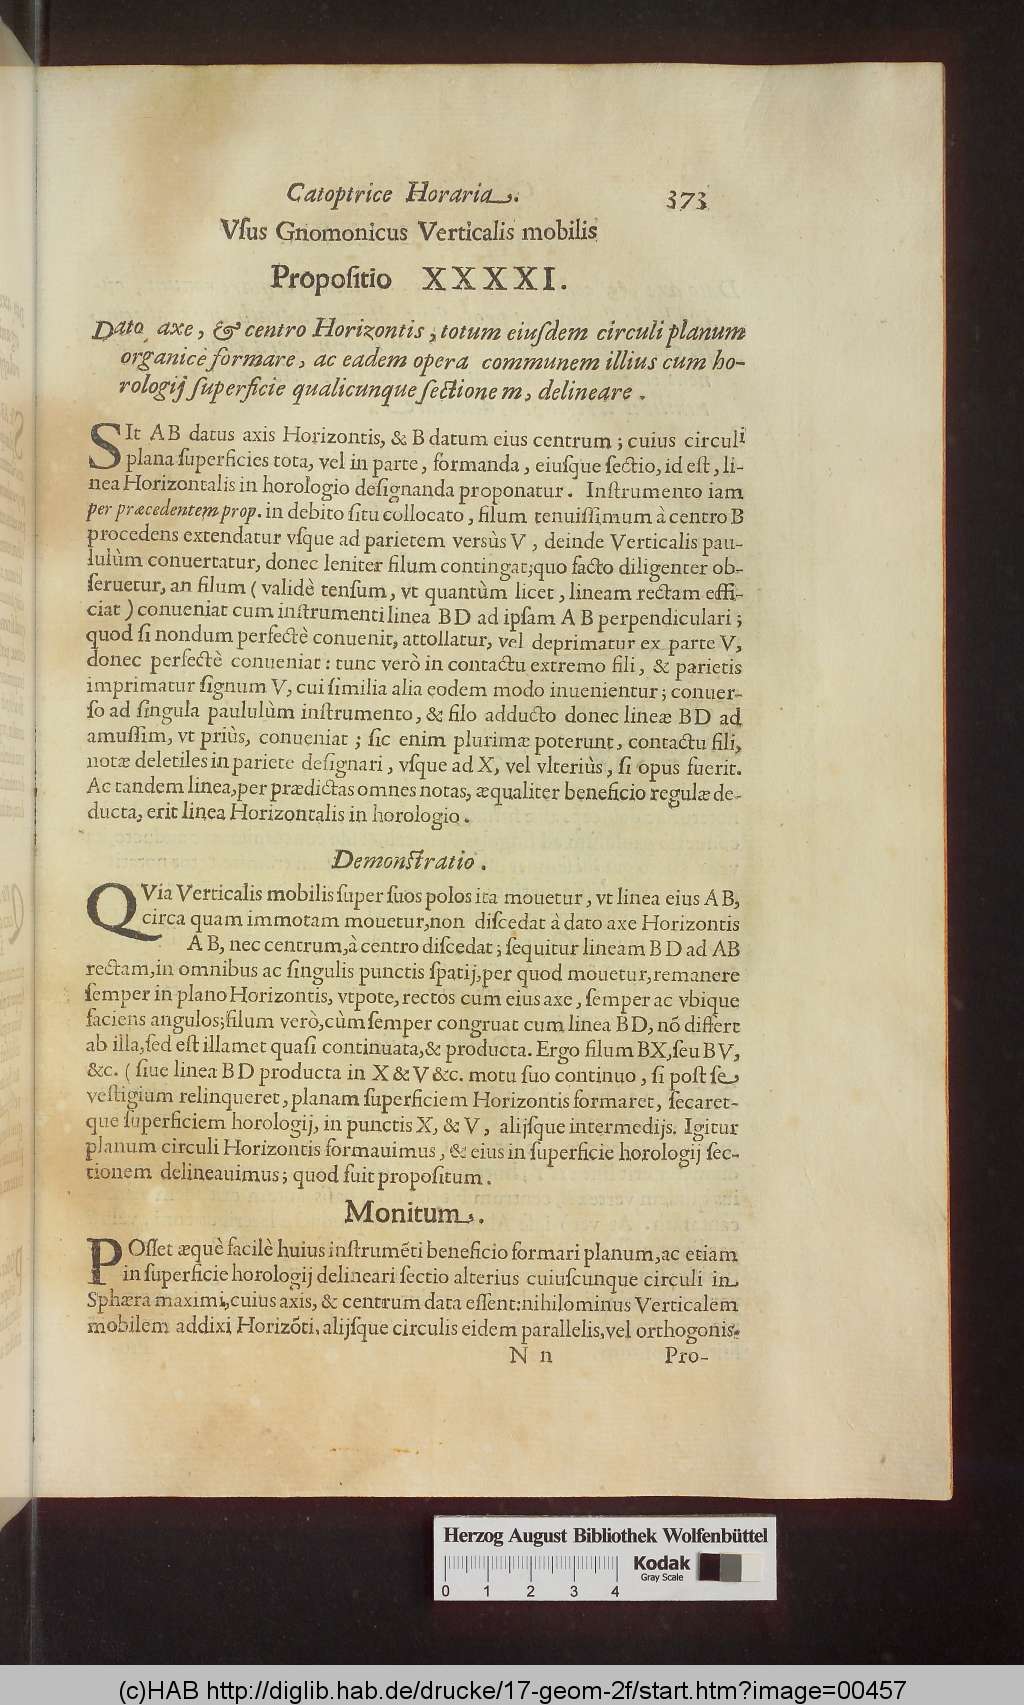 Catoptrice Horaria. 373
Vſus Gnomonicus Verticalis mobilis
Propoſitio XXXXI.
Dato axe, & centro Horizontis, totum eiuſdem circuli planum
organicè formare, ac eadem opera communem illius cum ho-
rologij ſuperficie qualicunque ſectionem, delineare.
SIt AB datus axis Horizontis, & B datum eius centrum; cuius circuli
plana ſuperficies tota, vel in parte, formanda, eiuſque ſectio, id eſt, li-
nea Horizontalis in horologio deſignanda proponatur. Inſtrumento iam
per præcedentem prop. in debito ſitu collocato, filum tenuiſſimum à centro B
procedens extendatur vſque ad parietem versùs V, deinde Verticalis pau-
lulùm conuertatur, donec leniter filum contingat; quo facto diligenter ob-
ſeruetur, an filum (validè tenſum, vt quantùm licet, lineam rectam effi-
ciat) conueniat cum inſtrumenti linea BD ad ipſam AB perpendiculari;
quod ſi nondum perfectè conuenit, attollatur, vel deprimatur ex parte V,
donec perfectè conueniat: tunc verò in contactu extremo fili, & parietis
imprimatur ſignum V, cui ſimilia alia eodem modo inuenientur; conuer-
ſo ad ſingula paululùm inſtrumento, & filo adducto donec lineæ BD ad
amuſſim, vt priùs, conueniat; ſic enim plurimæ poterunt, contactu fili,
notæ deletiles in pariete deſignari, vſque ad X, vel vlteriùs, ſi opus fuerit.
Ac tandem linea, per prædictas omnes notas, æqualiter beneficio regulæ de-
ducta, erit linea Horizontalis in horologio.
Demonſtratio.
QVia Verticalis mobilis ſuper ſuos polos ita mouetur, vt linea eius AB,
circa quam immotam mouetur, non diſcedat à dato axe Horizontis
AB, nec centrum, à centro diſcedat; ſequitur lineam BD ad AB
rectam, in omnibus ac ſingulis punctis ſpatij, per quod mouetur, remanere
ſemper in plano Horizontis, vtpote, rectos cum eius axe, ſemper ac vbique
faciens angulos; filum verò, cùm ſemper congruat cum linea BD, nõ differt
ab illa, ſed eſt illamet quaſi continuata, & producta. Ergo filum BX, ſeu BV,
&c. (ſiue linea BD producta in X & V &c. motu ſuo continuo, ſi poſt ſe
veſtigium relinqueret, planam ſuperficiem Horizontis formaret, ſecaret-
que ſuperficiem horologij, in punctis X, & V, alijſque intermedijs. Igitur
planum circuli Horizontis formauimus, & eius in ſuperficie horologij ſec-
tionem delineauimus; quod fuit propoſitum.
Monitum.
POſſet æquè facilè huius inſtrumẽti beneficio formari planum, ac etiam
in ſuperficie horologij delineari ſectio alterius cuiuſcunque circuli in
Sphæra maximi, cuius axis, & centrum data eſſent: nihilominus Verticalem
mobilem addixi Horizõti, alijſque circulis eidem parallelis, vel orthogonis.
N n Pro-
Herzog August Bibliothek Wolfenbüttel
Kodak
Gray Scale
0 1 2 3 4
(c)HAB http://diglib.hab.de/drucke/17-geom-2f/start.htm?image=00457